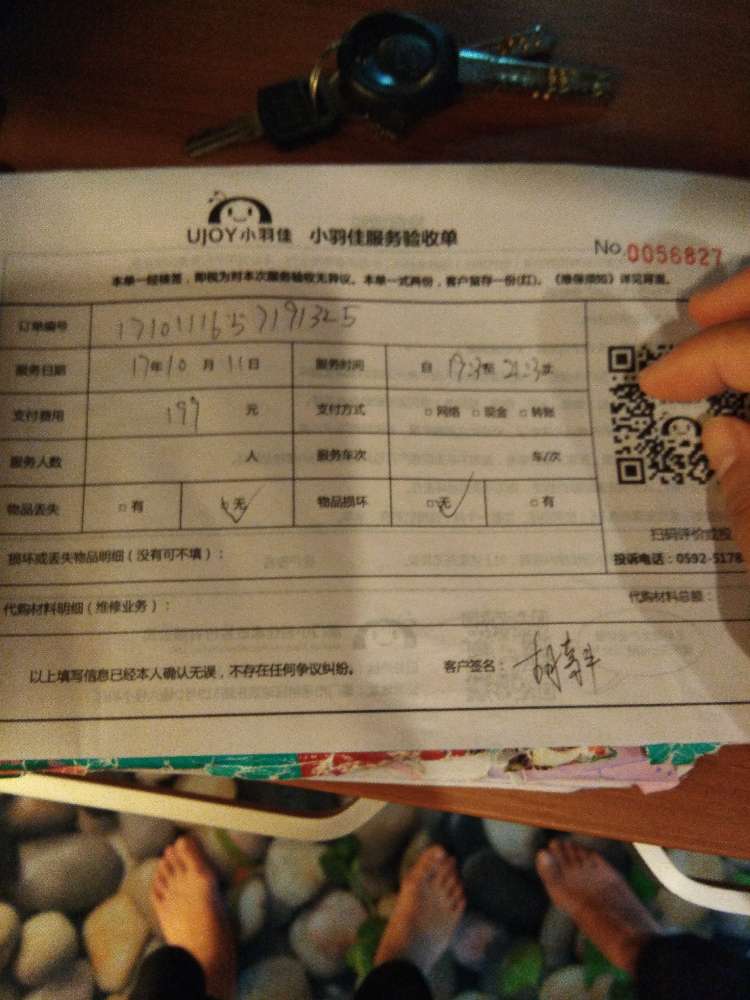 UJOY小羽佳 小羽佳服务验收单
No.0056827
本单一经核签，即视为对本次服务验收无异议。本单一式两份，客户留存一份(红)。《维保须知》详见背面。
订单编号
服务日期 17年10月11日 服务时间 自 至 次
支付费用 199 元 支付方式 □网络 □现金 □转账
服务人数 人 服务车次 车/次
物品丢失 □有 □无 物品损坏 □无 □有
扫码评价或投
投诉电话：0592-5178
损坏或丢失物品明细（没有可不填）：
代购材料明细（维修业务）： 代购材料总额：
以上填写信息已经本人确认无误，不存在任何争议纠纷。 客户签名：